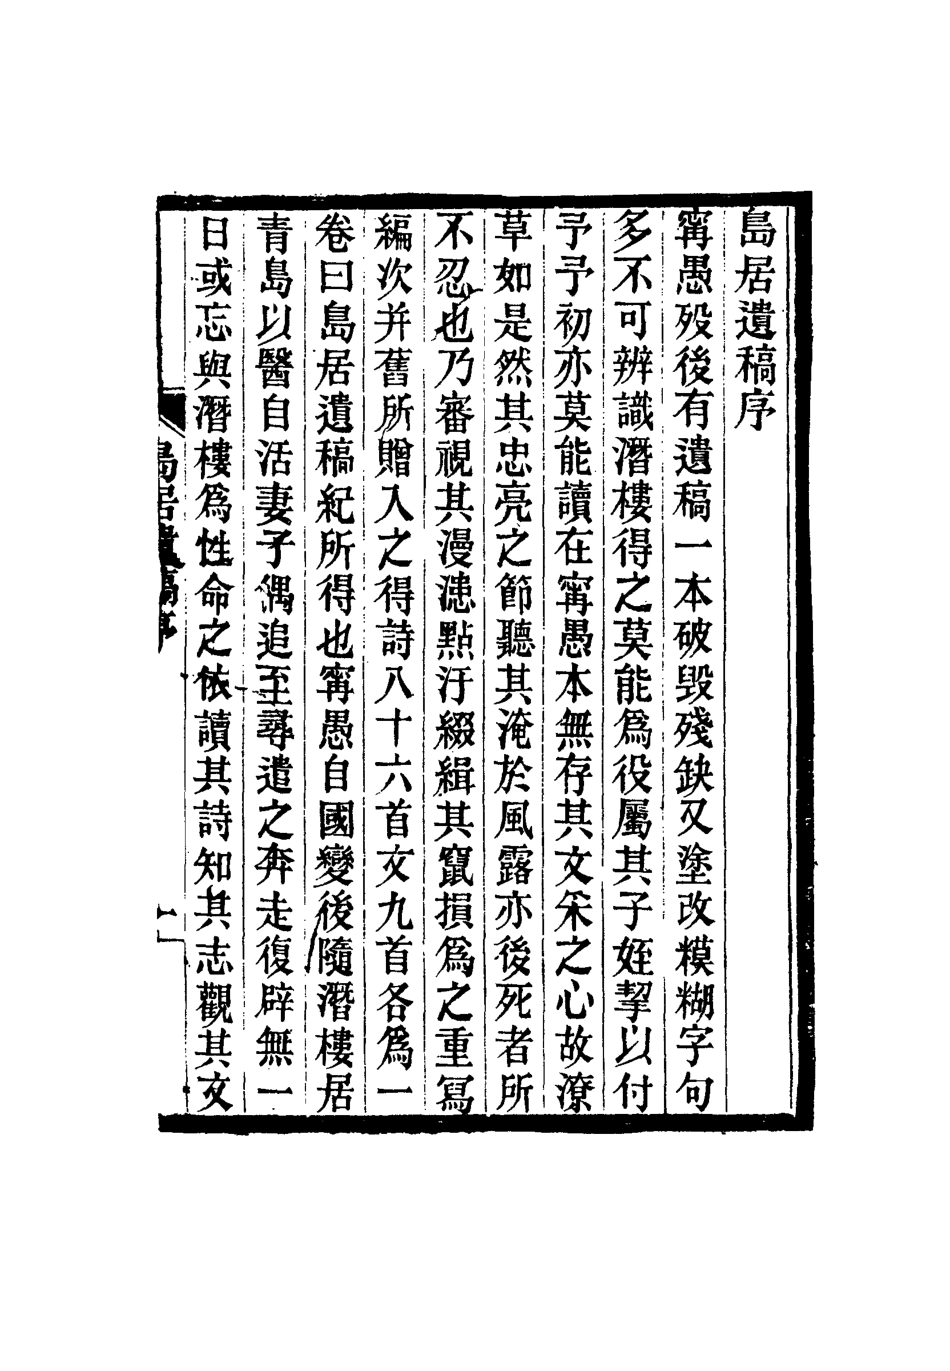 島居遺稿序
甯愚歿後有遺稿一本破毀殘缺又塗改糢糊字句
多不可辨識潛樓得之莫能爲役屬其子姪挈以付
予予初亦莫能讀在甯愚本無存其文采之心故潦
草如是然其忠亮之節聽其淹於風露亦後死者所
不忍也乃審視其漫漶點汙綴緝其竄損爲之重寫
編次并舊所贈入之得詩八十六首文九首各爲一
卷曰島居遺稿紀所得也甯愚自國變後隨潛樓居
青島以醫自活妻子偶追至尋遣之奔走復辟無一
日或忘與潛樓爲性命之依讀其詩知其志觀其文
島居遺稿序